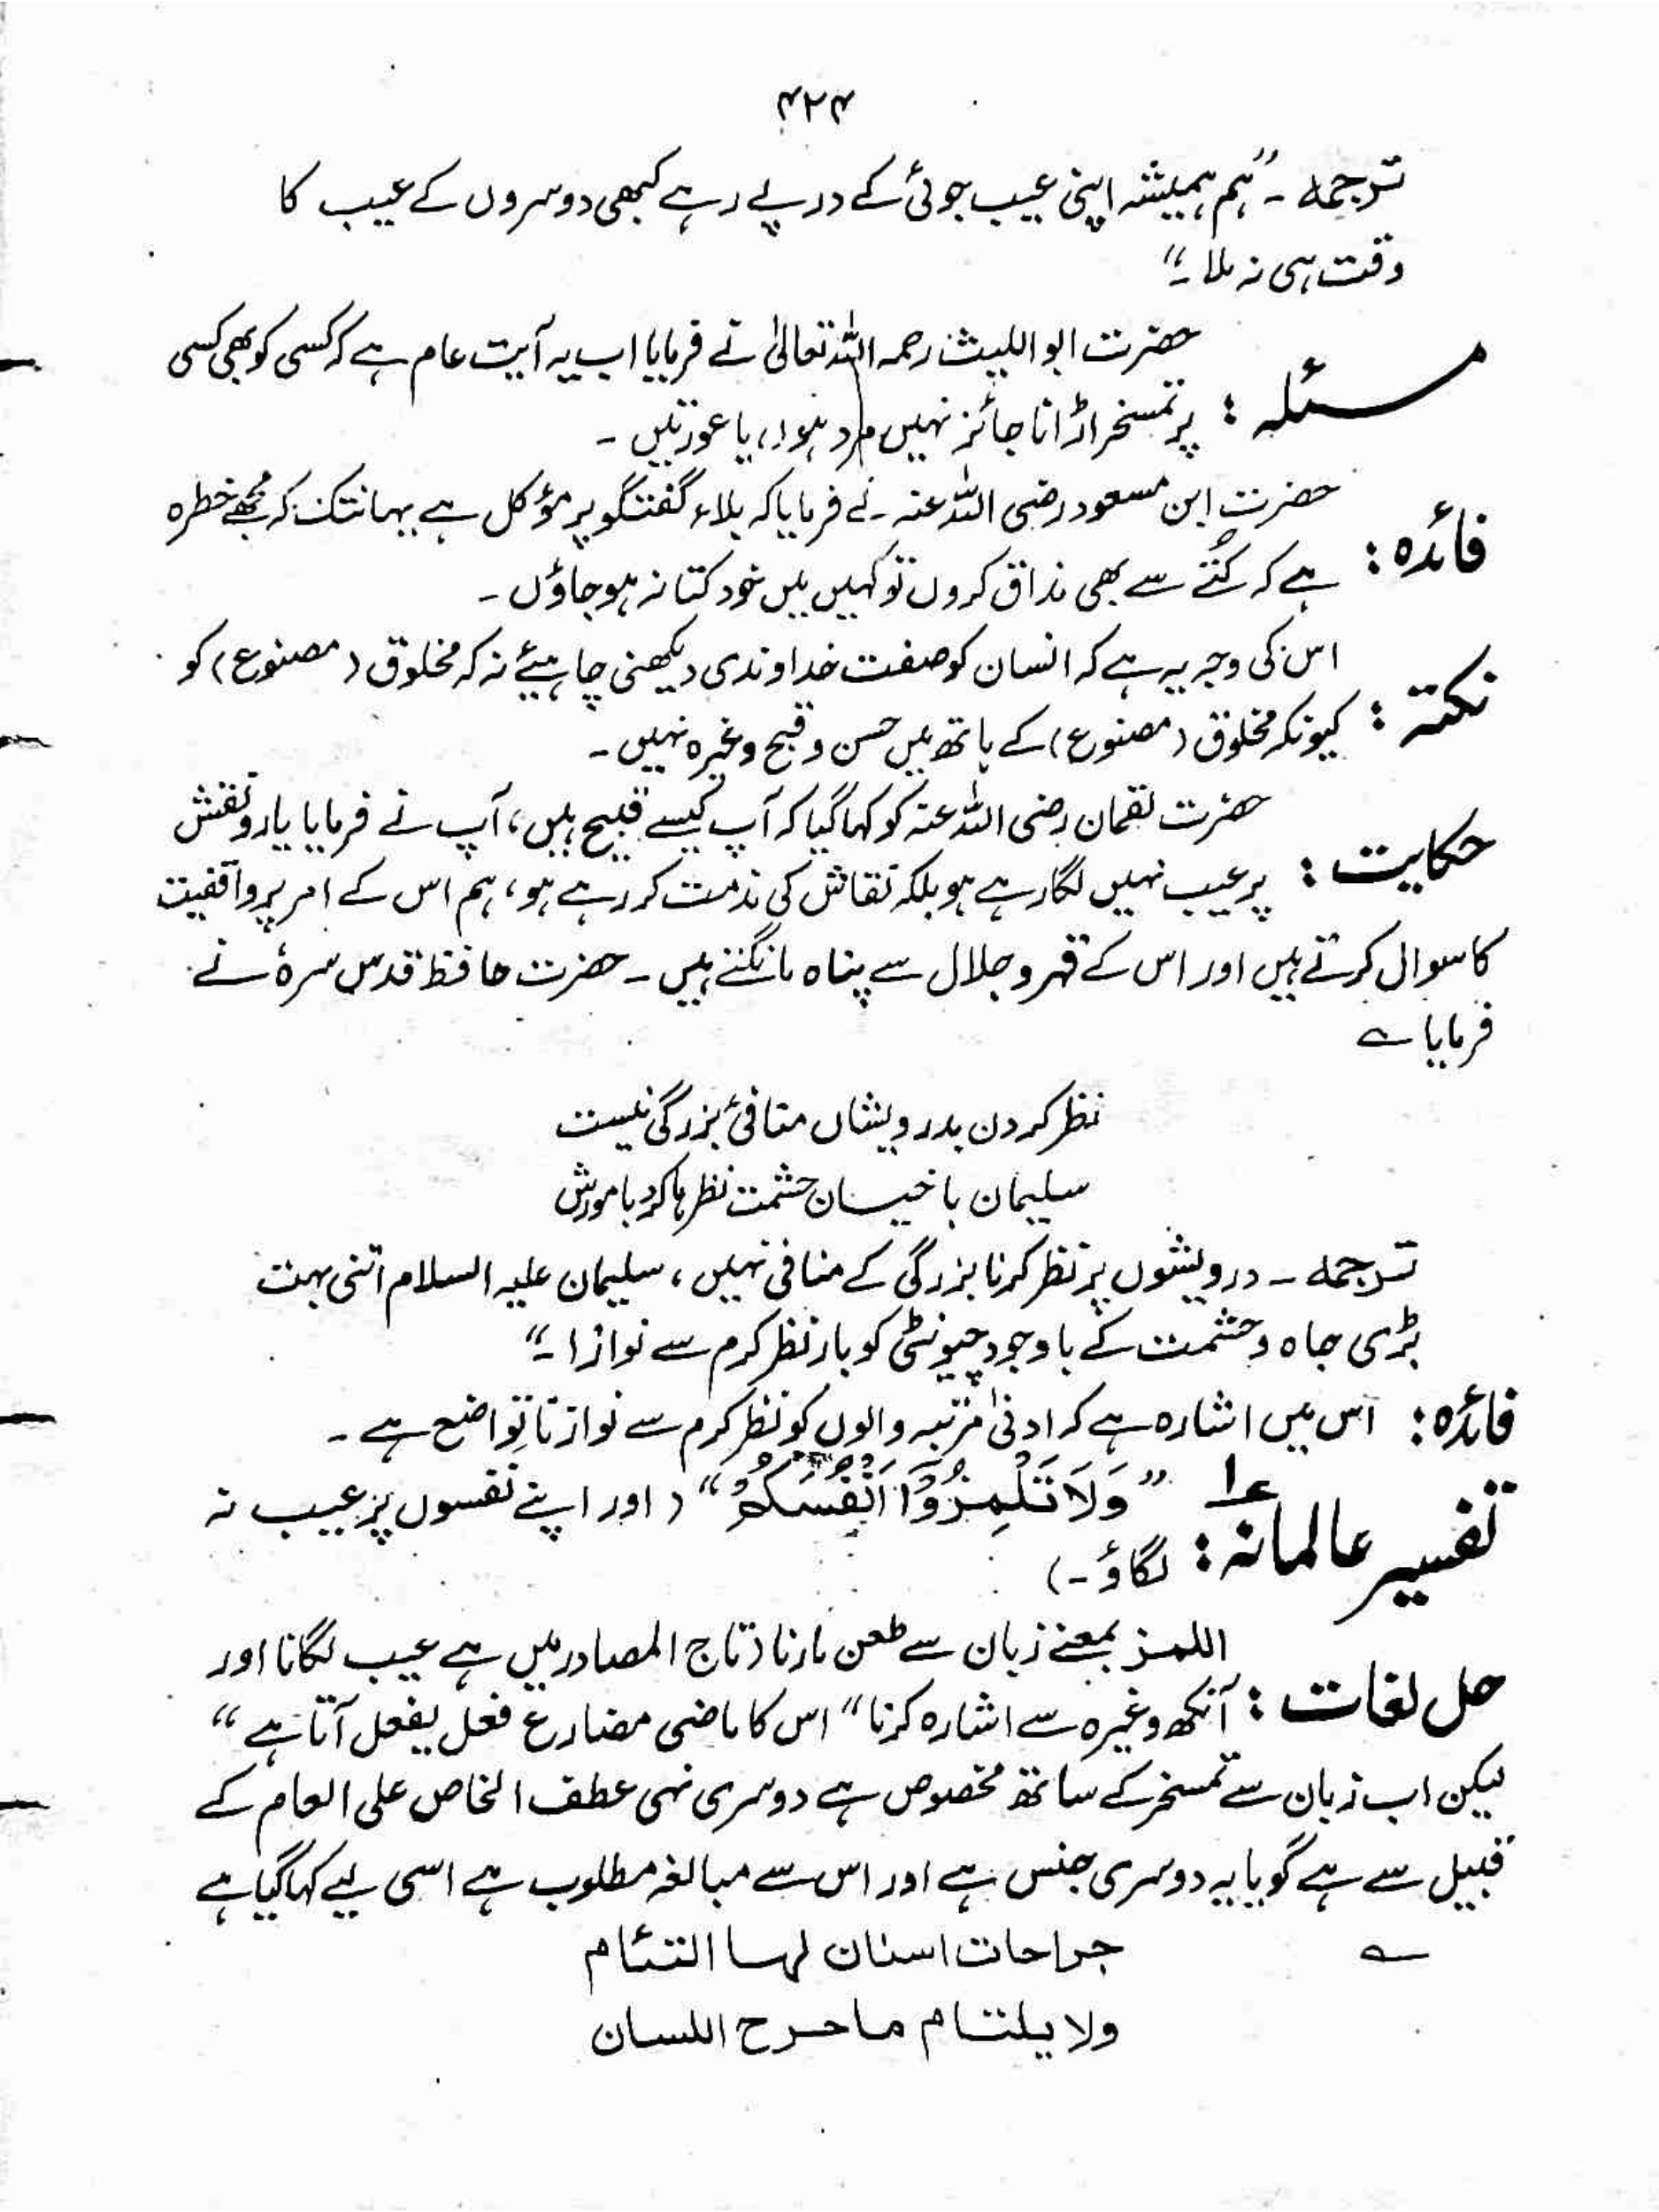 ۴۲۴
ترجمہ ۔ "ہم ہمیشہ اپنی عیب جوئی کے درپے رہے کبھی دوسروں کے عیب کا
وقت ہی نہ ملا ۔"
حضرت ابو اللیث رحمہ اللہ تعالیٰ نے فرمایا اب یہ آیت عام ہے کہ کسی کو بھی کسی
مسئلہ : پر تمسخر اڑانا جائز نہیں مرد ہوں یا عورتیں ۔
حضرت ابن مسعود رضی اللہ عنہ نے فرمایا کہ بلاء گفتگو پر مؤکل ہے یہانتک کہ مجھے خطرہ
فائدہ : ہے کہ کُتّے سے بھی مذاق کروں تو کہیں میں خود کتا نہ ہو جاؤں ۔
اس کی وجہ یہ ہے کہ انسان کو صفت خداوندی دیکھنی چاہیئے نہ کہ مخلوق (مصنوع) کو
نکتہ : کیونکہ مخلوق (مصنوع) کے ہاتھ میں حسن و قبح وغیرہ نہیں ۔
حضرت لقمان رضی اللہ عنہ کو کہا گیا کہ آپ کیسے قبیح ہیں، آپ نے فرمایا یارو نقش
حکایت : پر عیب نہیں لگا رہے ہو بلکہ نقاش کی مذمت کر رہے ہو، ہم اس کے امر پر واقفیت
کا سوال کرتے ہیں اور اس کے قہر و جلال سے پناہ مانگتے ہیں ۔ حضرت حافظ قدس سرہٗ نے
فرمایا ؎
نظر کردن بدرویشاں منافیٔ بزرگی نیست
سلیمان با خیساں حشمت نظرہا کرد با مورش
ترجمہ ۔ درویشوں پر نظر کرنا بزرگی کے منافی نہیں، سلیمان علیہ السلام اتنی بہت
بڑی جاہ و حشمت کے باوجود چیونٹی کو بار نظر کرم سے نوازا ۔"
فائدہ : اس میں اشارہ ہے کہ ادنیٰ مرتبہ والوں کو نظر کرم سے نوازنا تواضع ہے ۔
تفسیر عالمانہ : ع۱ "وَلَا تَلْمِزُوْٓا اَنْفُسَكُمْ" (اور اپنے نفسوں پر عیب نہ
لگاؤ ۔)
اللمز بمعنے زبان سے طعن مارنا (تاج المصادر میں ہے عیب لگانا اور
حل لغات : آنکھ وغیرہ سے اشارہ کرنا" اس کا ماضی مضارع فعل یفعل آتا ہے"
لیکن اب زبان سے تمسخر کے ساتھ مخصوص ہے دوسری نہی عطف الخاص علی العام کے
قبیل سے ہے گویا یہ دوسری جنس ہے اور اس سے مبالغہ مطلوب ہے اسی لیے کہا گیا ہے
؎ جراحات اسنان لہا التئام
ولا یلتام ما جرح اللسان